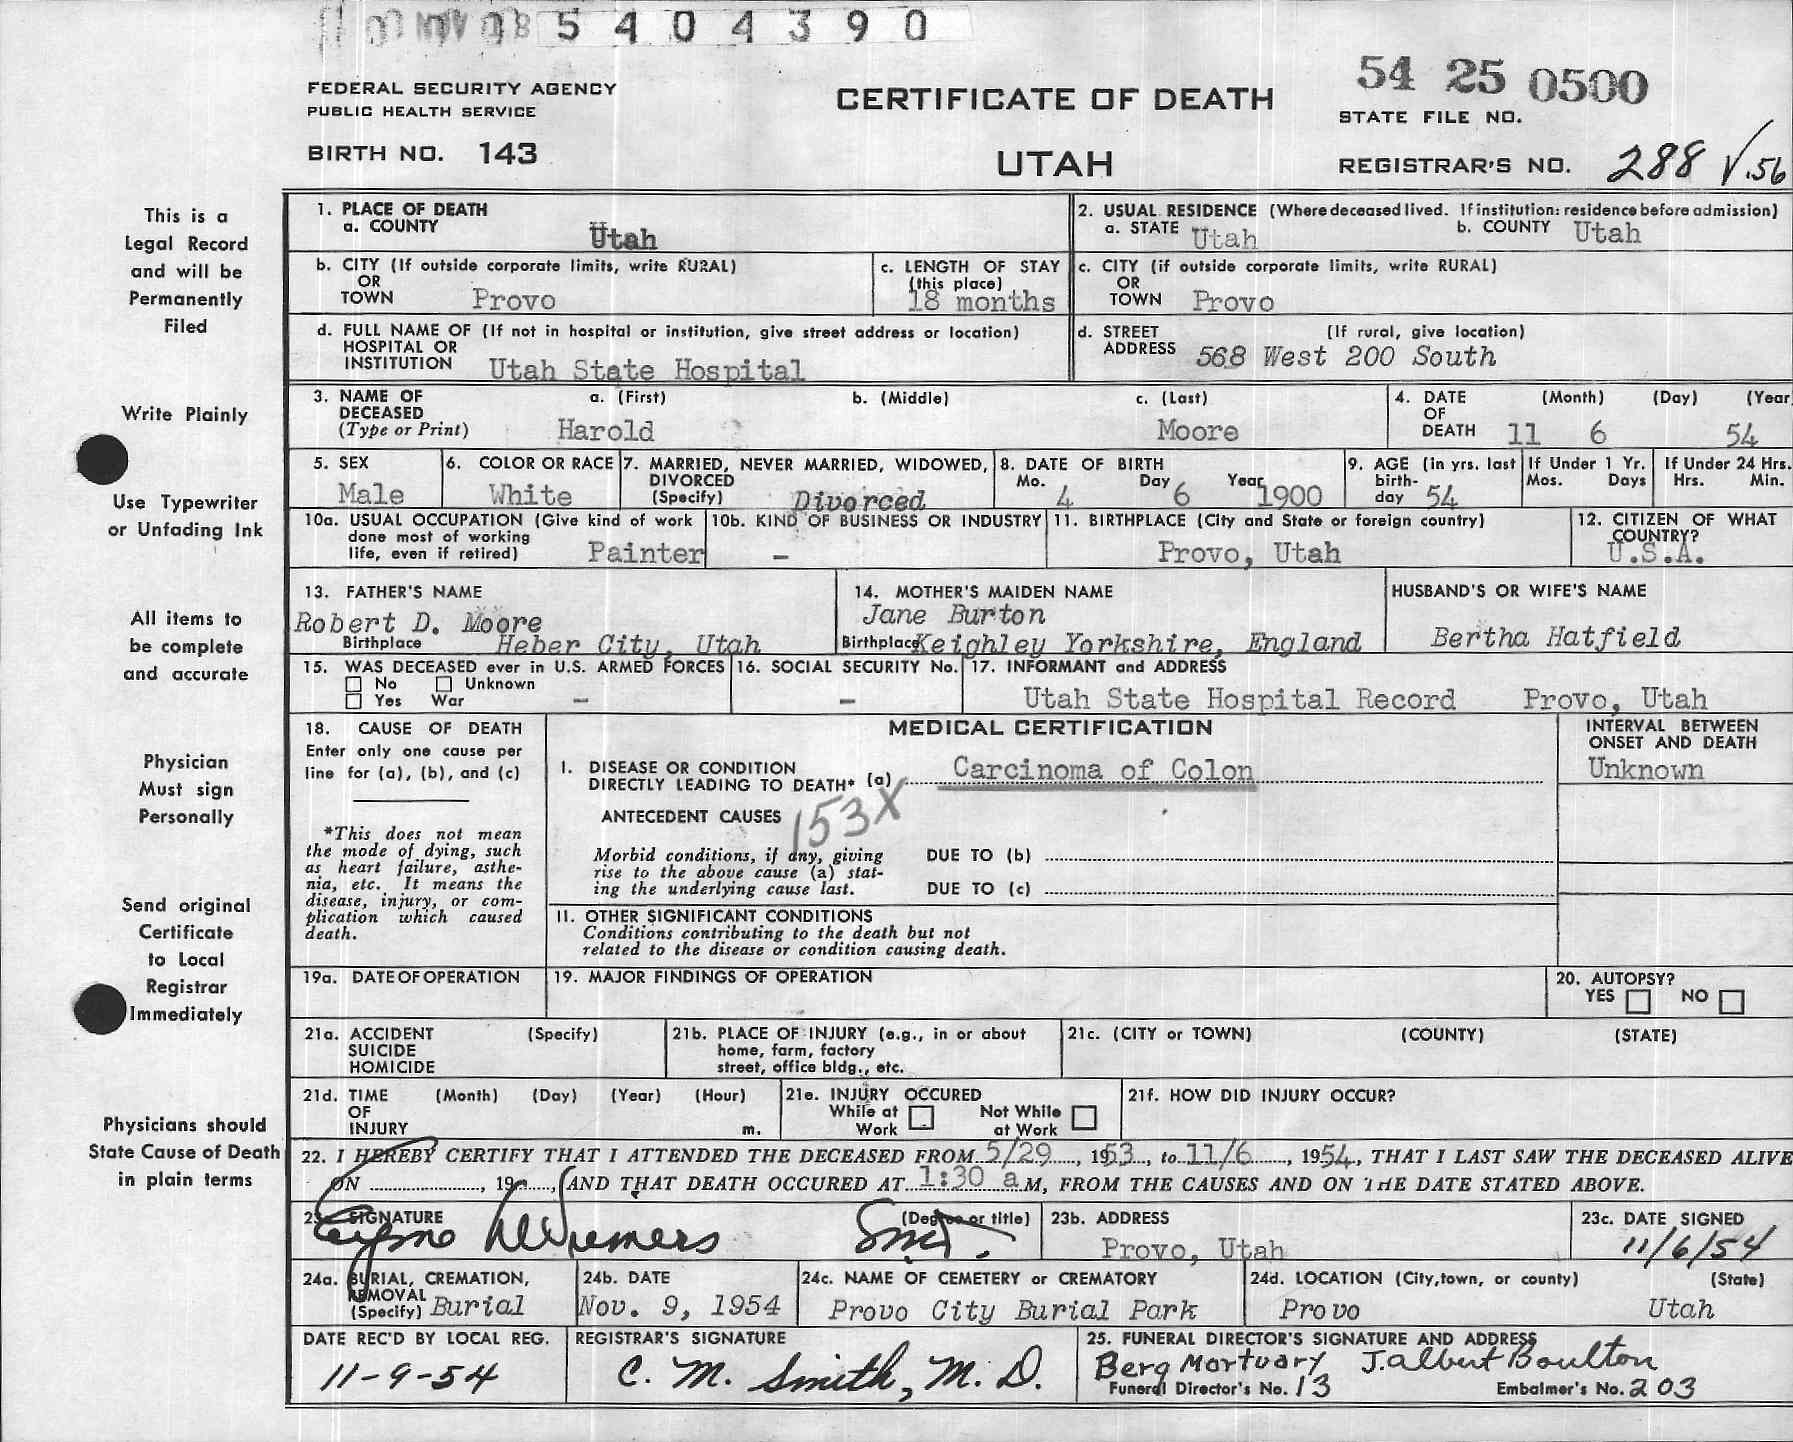 NOV 18 5404390
FEDERAL SECURITY AGENCY
PUBLIC HEALTH SERVICE
BIRTH NO. 143
CERTIFICATE OF DEATH
UTAH
54 25 0500
STATE FILE NO.
REGISTRAR'S NO. 288 √.56
This is a
Legal Record
and will be
Permanently
Filed
Write Plainly
Use Typewriter
or Unfading Ink
All items to
be complete
and accurate
Physician
Must sign
Personally
Send original
Certificate
to Local
Registrar
Immediately
Physicians should
State Cause of Death
in plain terms
1. PLACE OF DEATH
a. COUNTY Utah
2. USUAL RESIDENCE (Where deceased lived. If institution: residence before admission)
a. STATE Utah b. COUNTY Utah
b. CITY (If outside corporate limits, write RURAL)
OR
TOWN Provo
c. LENGTH OF STAY
(this place)
18 months
c. CITY (if outside corporate limits, write RURAL)
OR
TOWN Provo
d. FULL NAME OF (If not in hospital or institution, give street address or location)
HOSPITAL OR
INSTITUTION Utah State Hospital
d. STREET (If rural, give location)
ADDRESS 568 West 200 South
3. NAME OF a. (First) b. (Middle) c. (Last)
DECEASED
(Type or Print) Harold Moore
4. DATE (Month) (Day) (Year
OF
DEATH 11 6 54
5. SEX
Male
6. COLOR OR RACE
White
7. MARRIED, NEVER MARRIED, WIDOWED,
DIVORCED
(Specify) Divorced
8. DATE OF BIRTH
Mo. Day Year
4 6 1900
9. AGE (in yrs. last
birth-
day 54
If Under 1 Yr.
Mos. Days
If Under 24 Hrs.
Hrs. Min.
10a. USUAL OCCUPATION (Give kind of work
done most of working
life, even if retired) Painter
10b. KIND OF BUSINESS OR INDUSTRY
-
11. BIRTHPLACE (City and State or foreign country)
Provo, Utah
12. CITIZEN OF WHAT
COUNTRY?
U.S.A.
13. FATHER'S NAME
Robert D. Moore
Birthplace Heber City, Utah
14. MOTHER'S MAIDEN NAME
Jane Burton
Birthplace Keighley Yorkshire, England
HUSBAND'S OR WIFE'S NAME
Bertha Hatfield
15. WAS DECEASED ever in U.S. ARMED FORCES
No Unknown
Yes War -
16. SOCIAL SECURITY No.
-
17. INFORMANT and ADDRESS
Utah State Hospital Record Provo, Utah
18. CAUSE OF DEATH
Enter only one cause per
line for (a), (b), and (c)
*This does not mean
the mode of dying, such
as heart failure, asthe-
nia, etc. It means the
disease, injury, or com-
plication which caused
death.
MEDICAL CERTIFICATION
I. DISEASE OR CONDITION
DIRECTLY LEADING TO DEATH* (a) Carcinoma of Colon
153X
ANTECEDENT CAUSES
Morbid conditions, if any, giving
rise to the above cause (a) stat-
ing the underlying cause last.
DUE TO (b)
DUE TO (c)
II. OTHER SIGNIFICANT CONDITIONS
Conditions contributing to the death but not
related to the disease or condition causing death.
INTERVAL BETWEEN
ONSET AND DEATH
Unknown
19a. DATE OF OPERATION
19. MAJOR FINDINGS OF OPERATION
20. AUTOPSY?
YES NO
21a. ACCIDENT (Specify)
SUICIDE
HOMICIDE
21b. PLACE OF INJURY (e.g., in or about
home, farm, factory
street, office bldg., etc.
21c. (CITY or TOWN) (COUNTY) (STATE)
21d. TIME (Month) (Day) (Year) (Hour)
OF
INJURY m.
21e. INJURY OCCURED
While at Not While
Work at Work
21f. HOW DID INJURY OCCUR?
22. I HEREBY CERTIFY THAT I ATTENDED THE DECEASED FROM 5/29, 1953, to 11/6, 1954, THAT I LAST SAW THE DECEASED ALIVE
ON , 19 , AND THAT DEATH OCCURED AT 1:30 aM, FROM THE CAUSES AND ON THE DATE STATED ABOVE.
SIGNATURE (Degree or title)
23b. ADDRESS
Provo, Utah
23c. DATE SIGNED
11/6/54
24a. BURIAL, CREMATION,
REMOVAL
(Specify) Burial
24b. DATE
Nov. 9, 1954
24c. NAME OF CEMETERY or CREMATORY
Provo City Burial Park
24d. LOCATION (City, town, or county) (State)
Provo Utah
DATE REC'D BY LOCAL REG.
11-9-54
REGISTRAR'S SIGNATURE
C. M. Smith, M. D.
25. FUNERAL DIRECTOR'S SIGNATURE AND ADDRESS
Berg Mortuary J. albert Boulton
Funeral Director's No. 13 Embalmer's No. 203